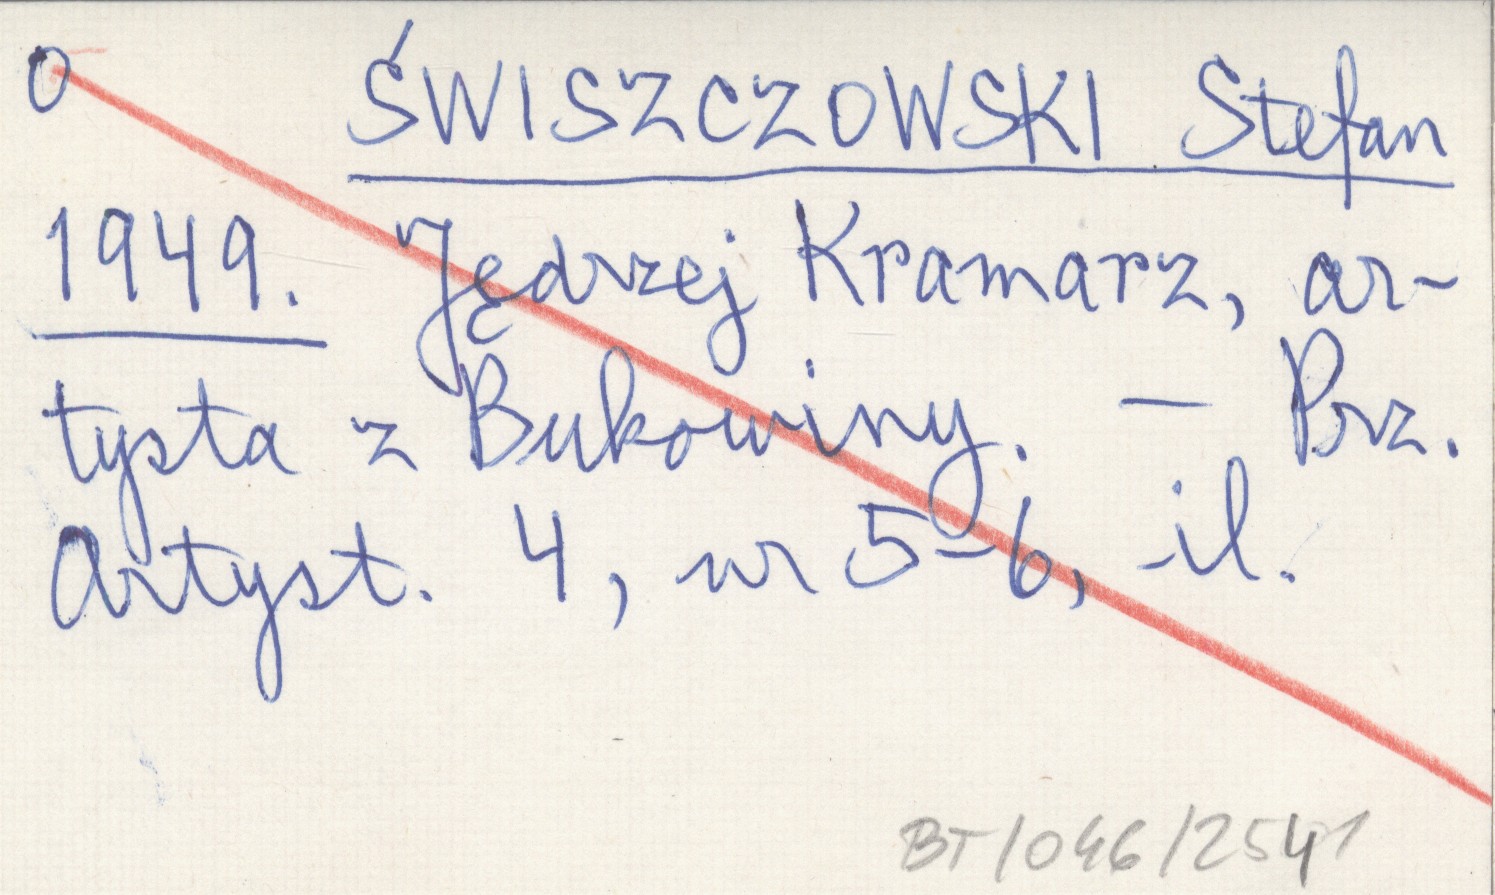 0 ŚWISZCZOWSKI Stefan
1949. Jędrzej Kramarz, ar-
tysta z Bukowiny. — Prz.
Artyst. 4, nr 5-6, il.
BT/046/2541